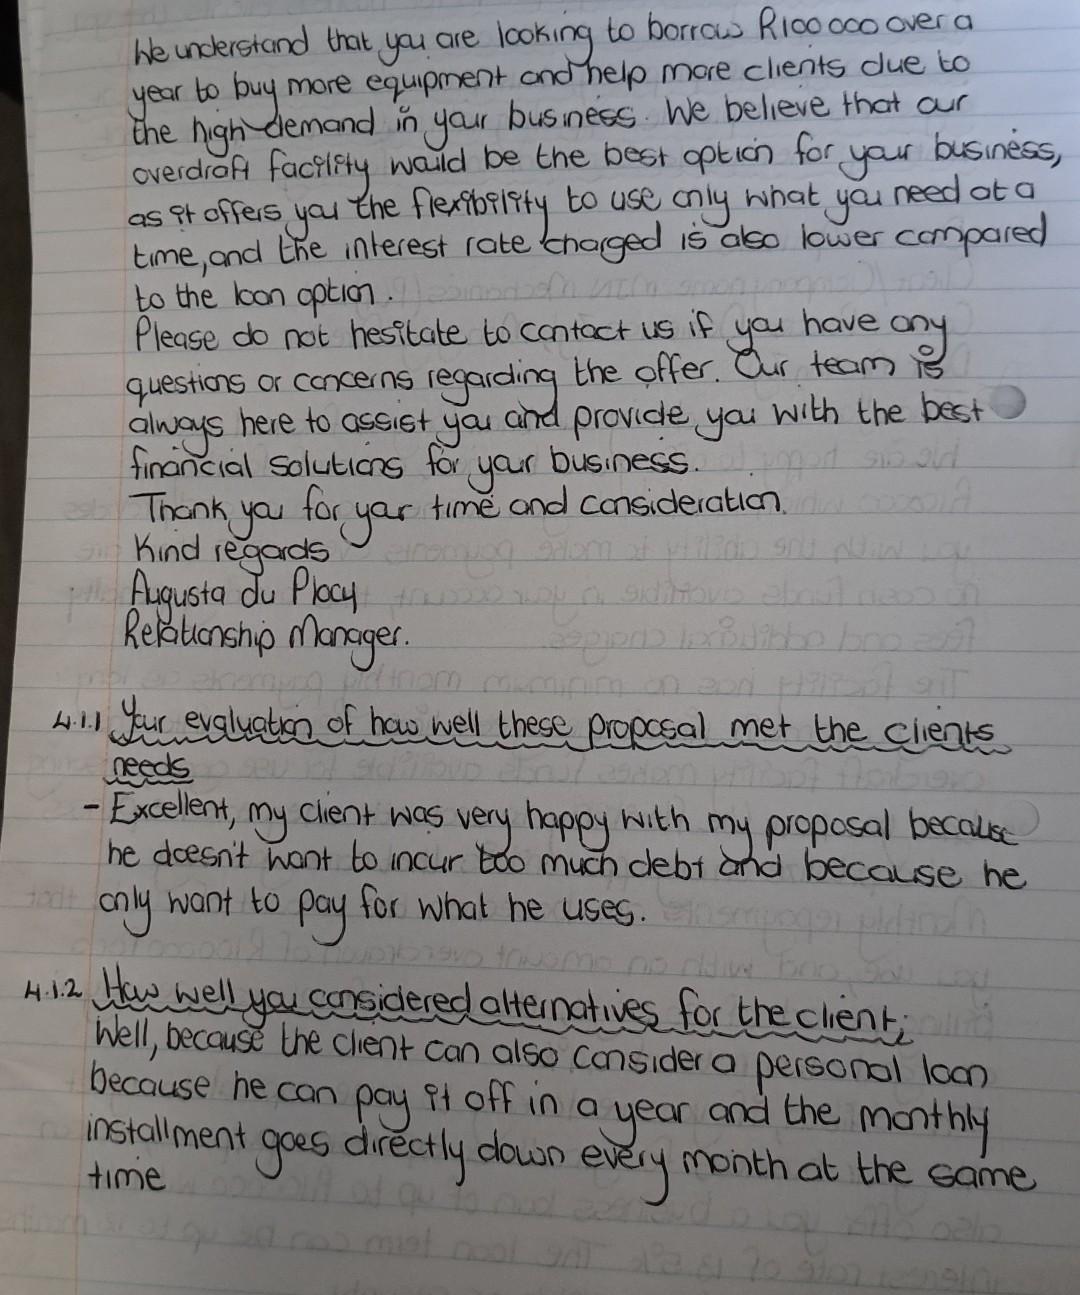 We understand that you are looking to borrow R100 000 over a
year to buy more equipment and help more clients due to
the high demand in your business. We believe that our
overdraft facility would be the best option for your business,
as it offers you the flexibility to use only what you need at a
time, and the interest rate charged is also lower compared
to the loan option.
Please do not hesitate to contact us if you have any
questions or concerns regarding the offer. Our team is
always here to assist you and provide you with the best
financial solutions for your business.
Thank you for your time and consideration.
Kind regards
Augusta du Plooy
Relationship Manager.
4.1.1 Your evaluation of how well these proposal met the clients
needs
- Excellent, my client was very happy with my proposal because
he doesn't want to incur too much debt and because he
only want to pay for what he uses.
4.1.2 How well you considered alternatives for the client;
Well, because the client can also consider a personal loan
because he can pay it off in a year and the monthly
installment goes directly down every month at the same
time